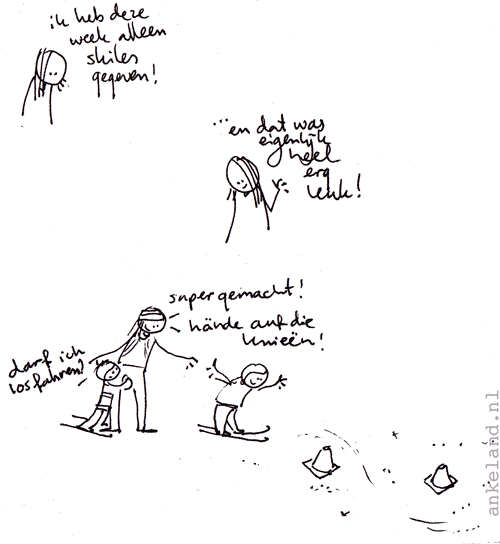 ik heb deze
week alleen
skiles
gegeven!
...en dat was
eigenlijk
heel
erg
leuk!
super gemacht!
hände auf die
knieën!
darf ich
losfahren?
ankeland.nl